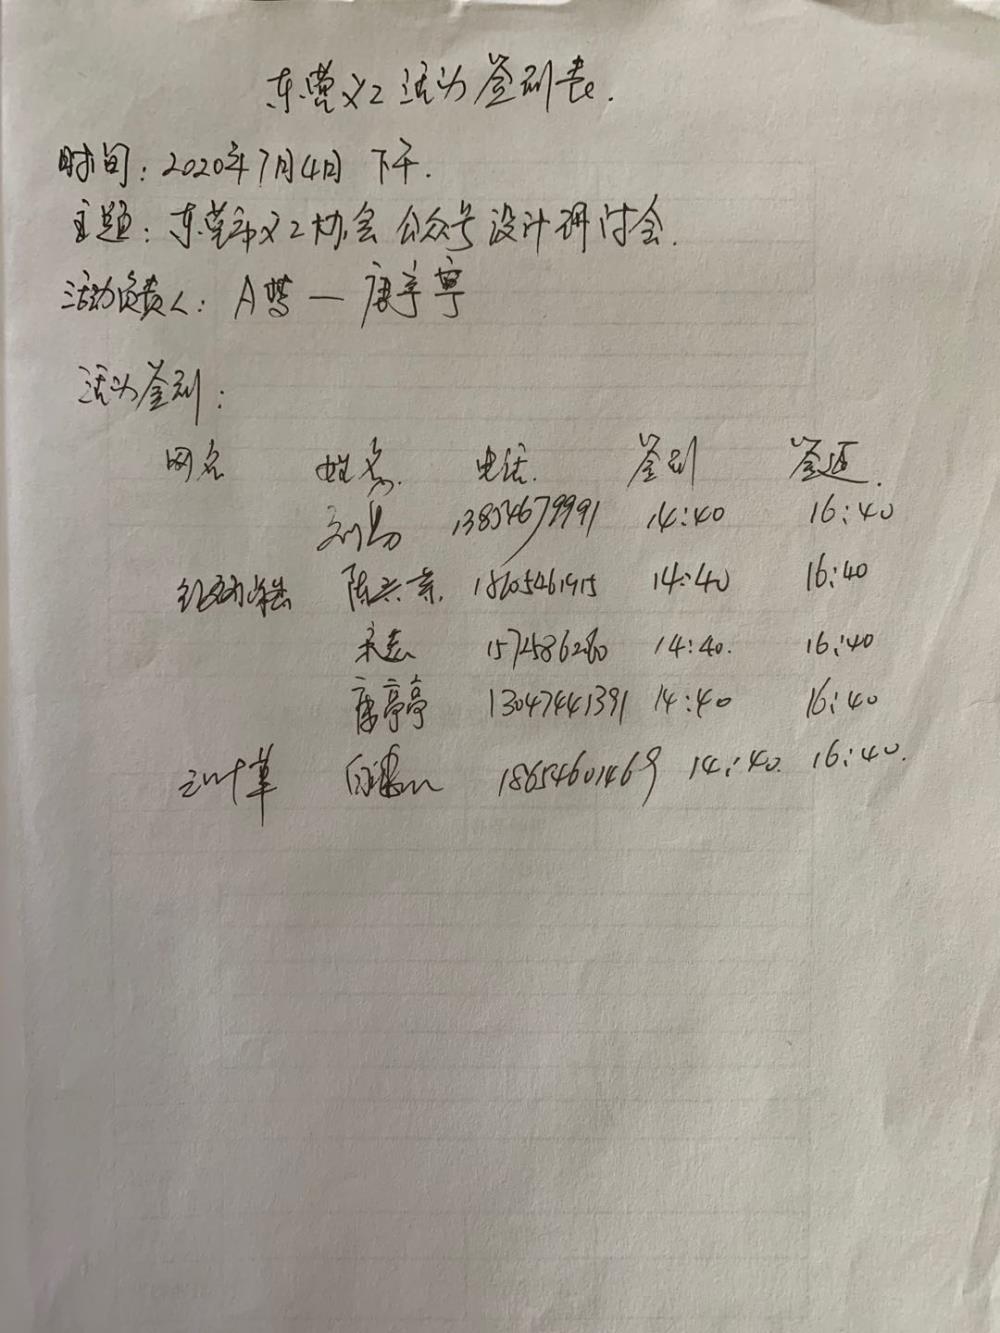 东营义工活动签到表.
时间: 2020年7月4日 下午.
主题: 东营市义工协会公众号设计研讨会.
活动负责人: A梦 — 唐亭亭
活动签到:
网名 姓名. 电话. 签到 签退.
13854679991 14:40 16:40
陈兴京. 18605461915 14:40 16:40
宋志 157586280 14:40. 16:40
唐亭亭 13047441391 14:40 16:40
18654601469 14:40. 16:40.